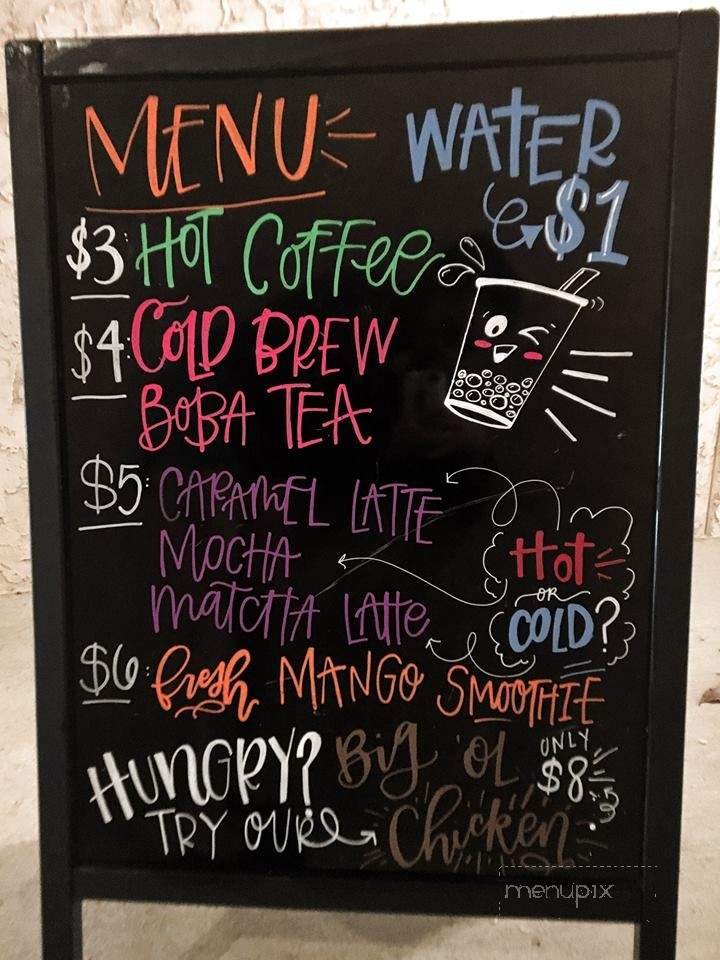 MENU
WATER
$1
$3: HOT COFFEE
$4: COLD BREW
BOBA TEA
$5: CARAMEL LATTE
MOCHA
MATCHA LATTE
HOT
OR
COLD?
$6: fresh MANGO SMOOTHIE
HUNGRY?
TRY OUR
Big 'OL
Chicken
ONLY
$8
menupix